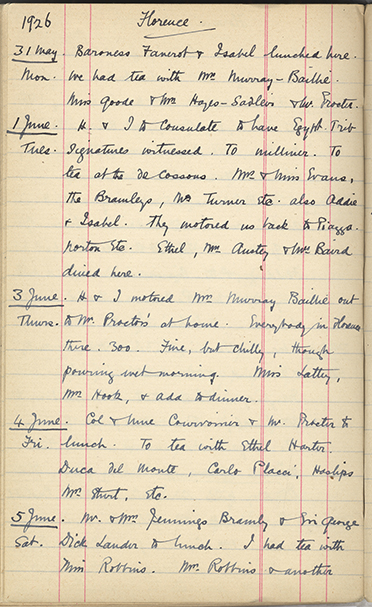 1926 Florence.
31 May. Baroness Fanerot & Isabel lunched here.
Mon. We had tea with Mrs Murray-Baillie.
Miss Goode & Mrs Hayes-Sadleir & Mr Procter.
1 June. H. & I to Consulate to have Egypt. Trib
Tues. Signatures witnessed. To milliner. To
tea at the de Cossons. Mrs & Miss Evans,
the Bramleys, Mrs Turner etc. also Addie
& Isabel. They motored us back to Piazza
porton etc. Ethel, Mrs Austey & Mrs Baird
dined here.
3 June. H & I motored Mrs Murray Baillie out
Thurs. to Mr Proctor's at home. Everybody in Florence
there. 300. Fine, but chilly, though
pouring wet morning. Miss Lattey,
Mrs Hook, & Add to dinner.
4 June. Col & Mme & Mr. Procter to
Fri. lunch. To tea with Ethel Harter.
Duca del Monte, Carlo Placci, Haslips
Mrs Sturt, etc.
5 June. Mr. & Mrs Jennings Bramly & Sir George
Sat. Dick Lauder to lunch. I had tea with
Miss Robbins. Mrs Robbins & another